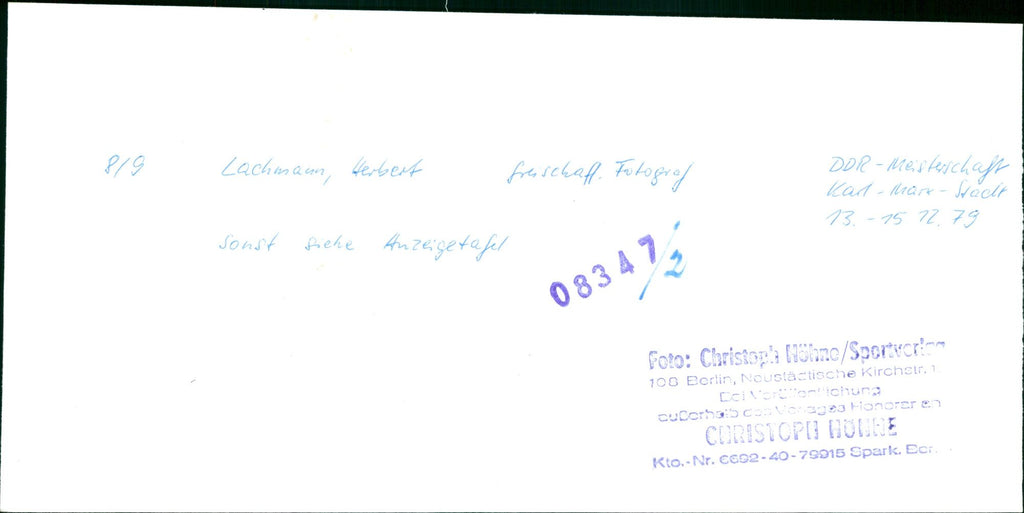 8/9 Lachmann, Herbert freischaff. Fotograf
DDR-Meisterschaft
Karl-Marx-Stadt
13.-15 12. 79
Sonst siehe Anzeigetafel
08347/2
Foto: Christoph Höhne/Sportverlag
108 Berlin, Neustädtische Kirchstr. 1
Bei Veröffentlichung
außerhalb des Verlages Honorar an
CHRISTOPH HÖHNE
Kto.-Nr. 6692-40-79915 Spark. Ber